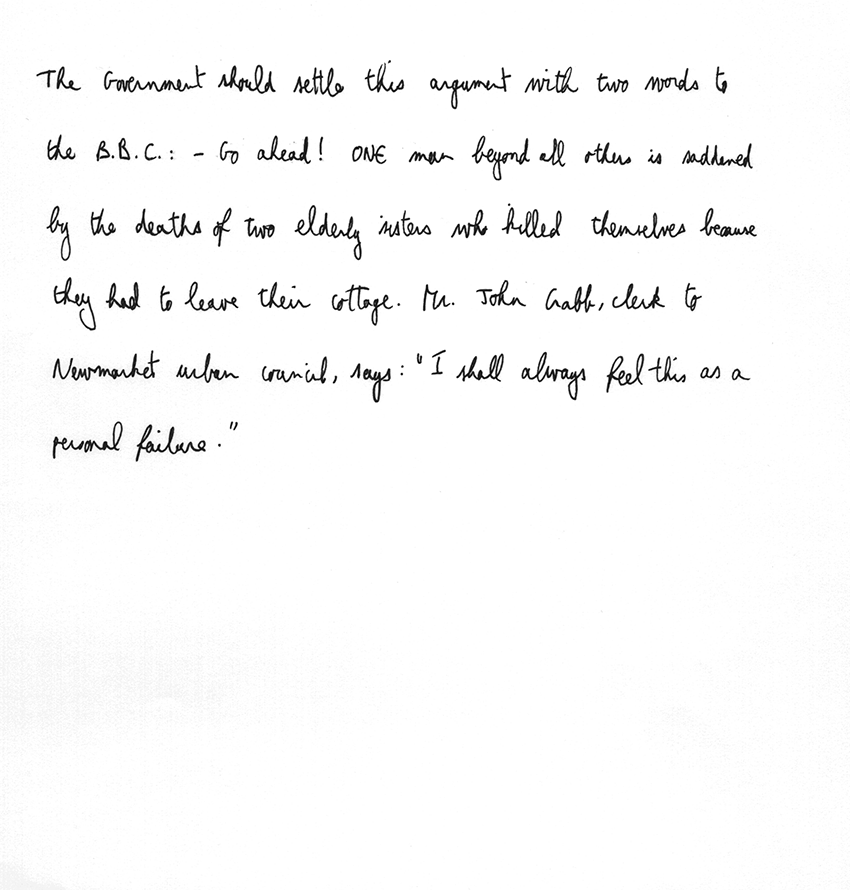 The Government should settle this argument with two words to
the B.B.C.: - Go ahead! ONE man beyond all others is saddened
by the deaths of two elderly sisters who killed themselves because
they had to leave their cottage. Mr. John Crabb, clerk to
Newmarket urban council, says: "I shall always feel this as a
personal failure."